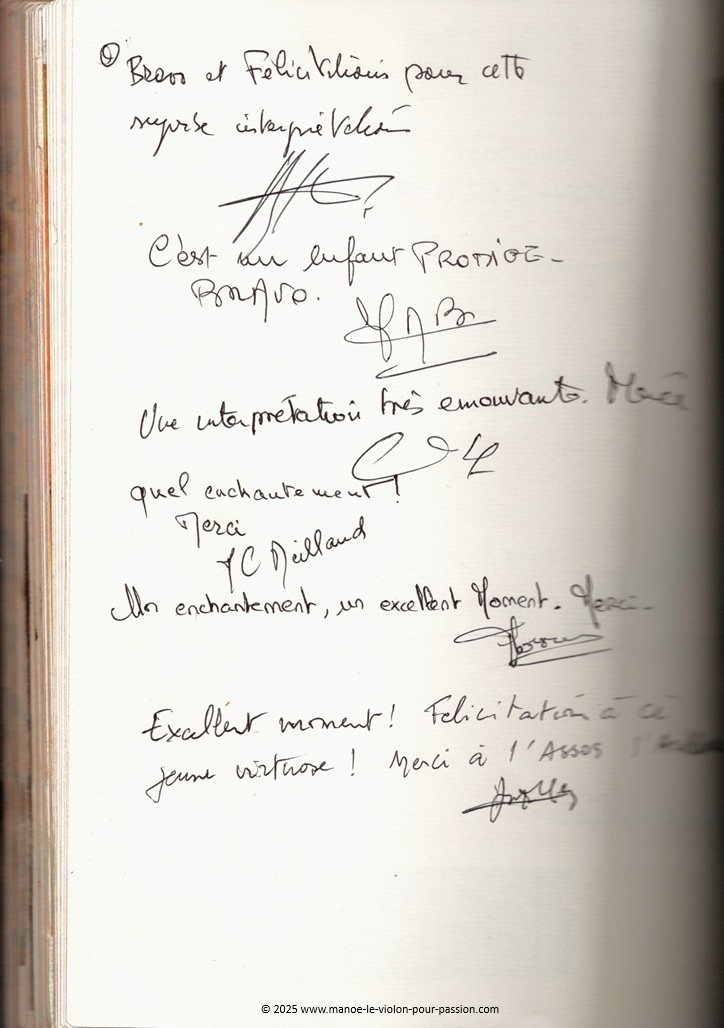 Bravo et Félicitations pour cette
reprise interprétation
C'est un enfant PRODIGE -
BRAVO.
Une interprétation très emouvante. Merci
quel enchantement !
Merci
JC Meilland
Un enchantement, un excellent Moment. Merci -
Excellent moment ! Felicitation à ce
jeune virtuose ! Merci à l'Assos
© 2025 www.manoe-le-violon-pour-passion.com